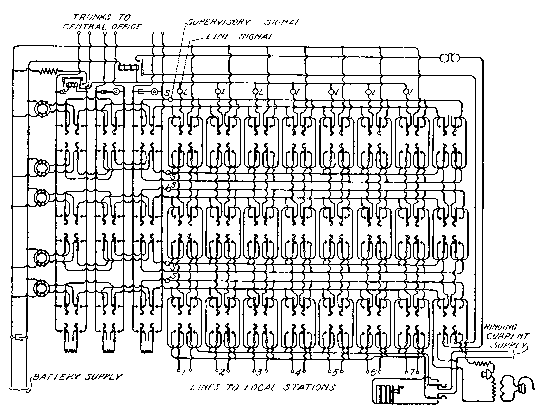 TRUNKS TO
CENTRAL OFFICE
SUPERVISORY SIGNAL
LINE SIGNAL
RINGING
CURRENT
SUPPLY
BATTERY SUPPLY
1 2 3 4 5 6 7
LINES TO LOCAL STATIONS